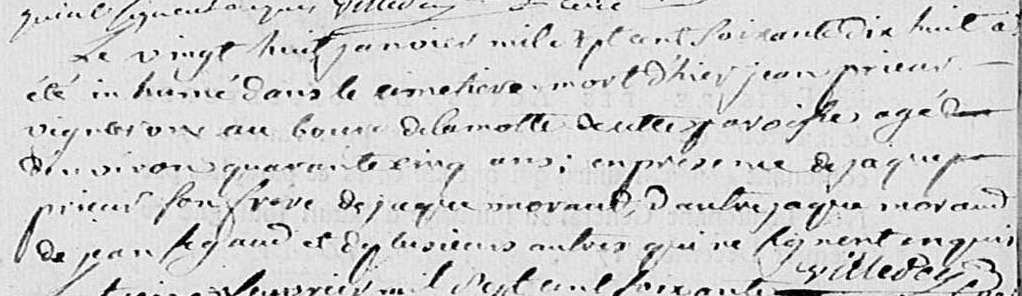 Le vingt huit janvier mil sept cent soixante dix huit a
été in humé dans le cimetiere mort d'hier jean prieur
vigneron au bourg delamotte de cette paroisse agé
denviron quarante cinq ans; en présence de jaque
prieur son frere de jaque moraud d'autre jaque moraud
de jean segaud et de plusieurs autres qui ne signent enquis
villedey
mil sept cent soixante